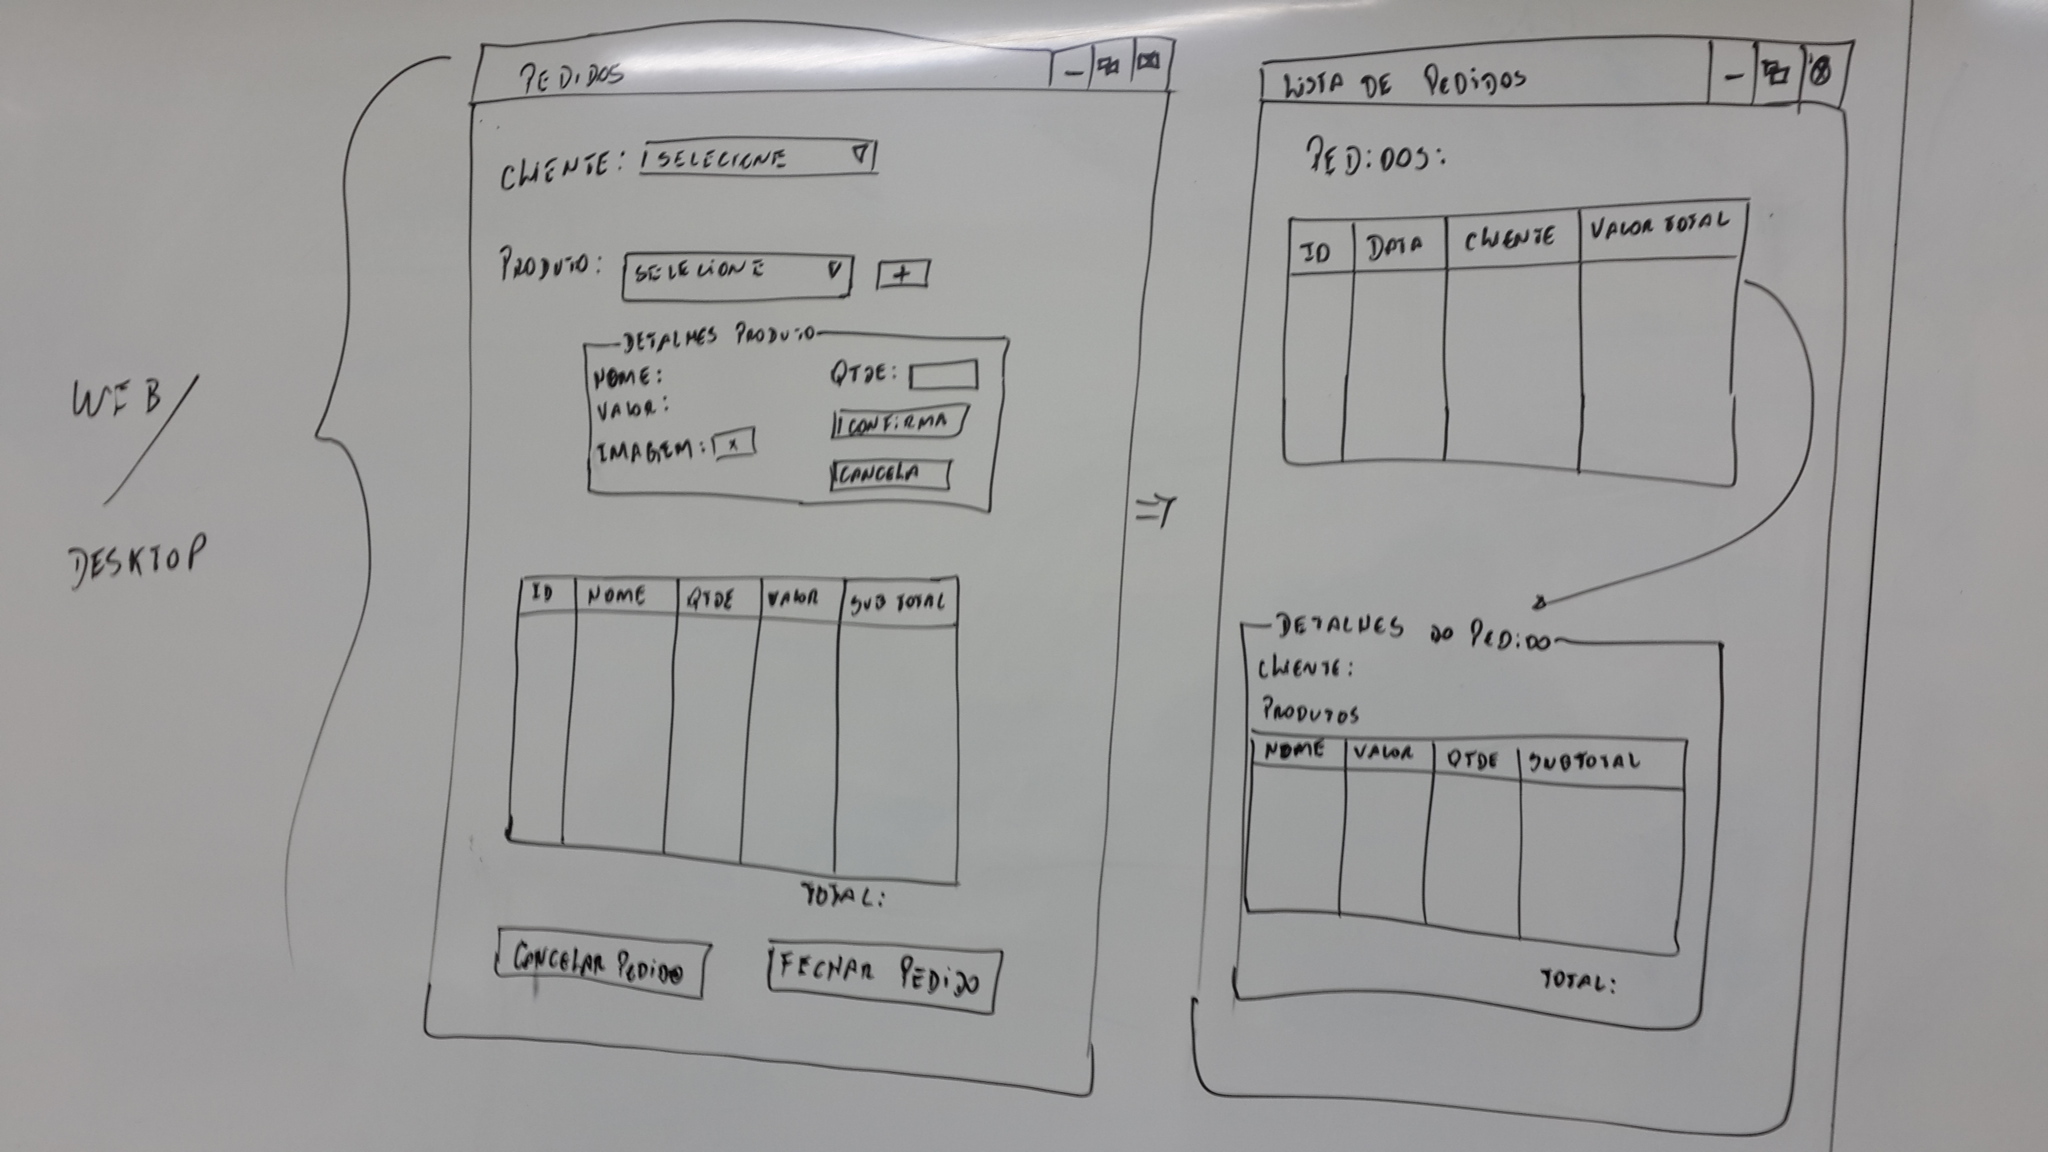 WEB/
DESKTOP
PEDIDOS
CLIENTE: SELECIONE
PRODUTO: SELECIONE +
DETALHES PRODUTO
NOME:
VALOR:
IMAGEM: x
QTDE:
CONFIRMA
CANCELA
ID NOME QTDE VALOR SUB TOTAL
TOTAL:
CANCELAR PEDIDO FECHAR PEDIDO
LISTA DE PEDIDOS
PEDIDOS:
ID DATA CLIENTE VALOR TOTAL
DETALHES DO PEDIDO
CLIENTE:
PRODUTOS
NOME VALOR QTDE SUBTOTAL
TOTAL: